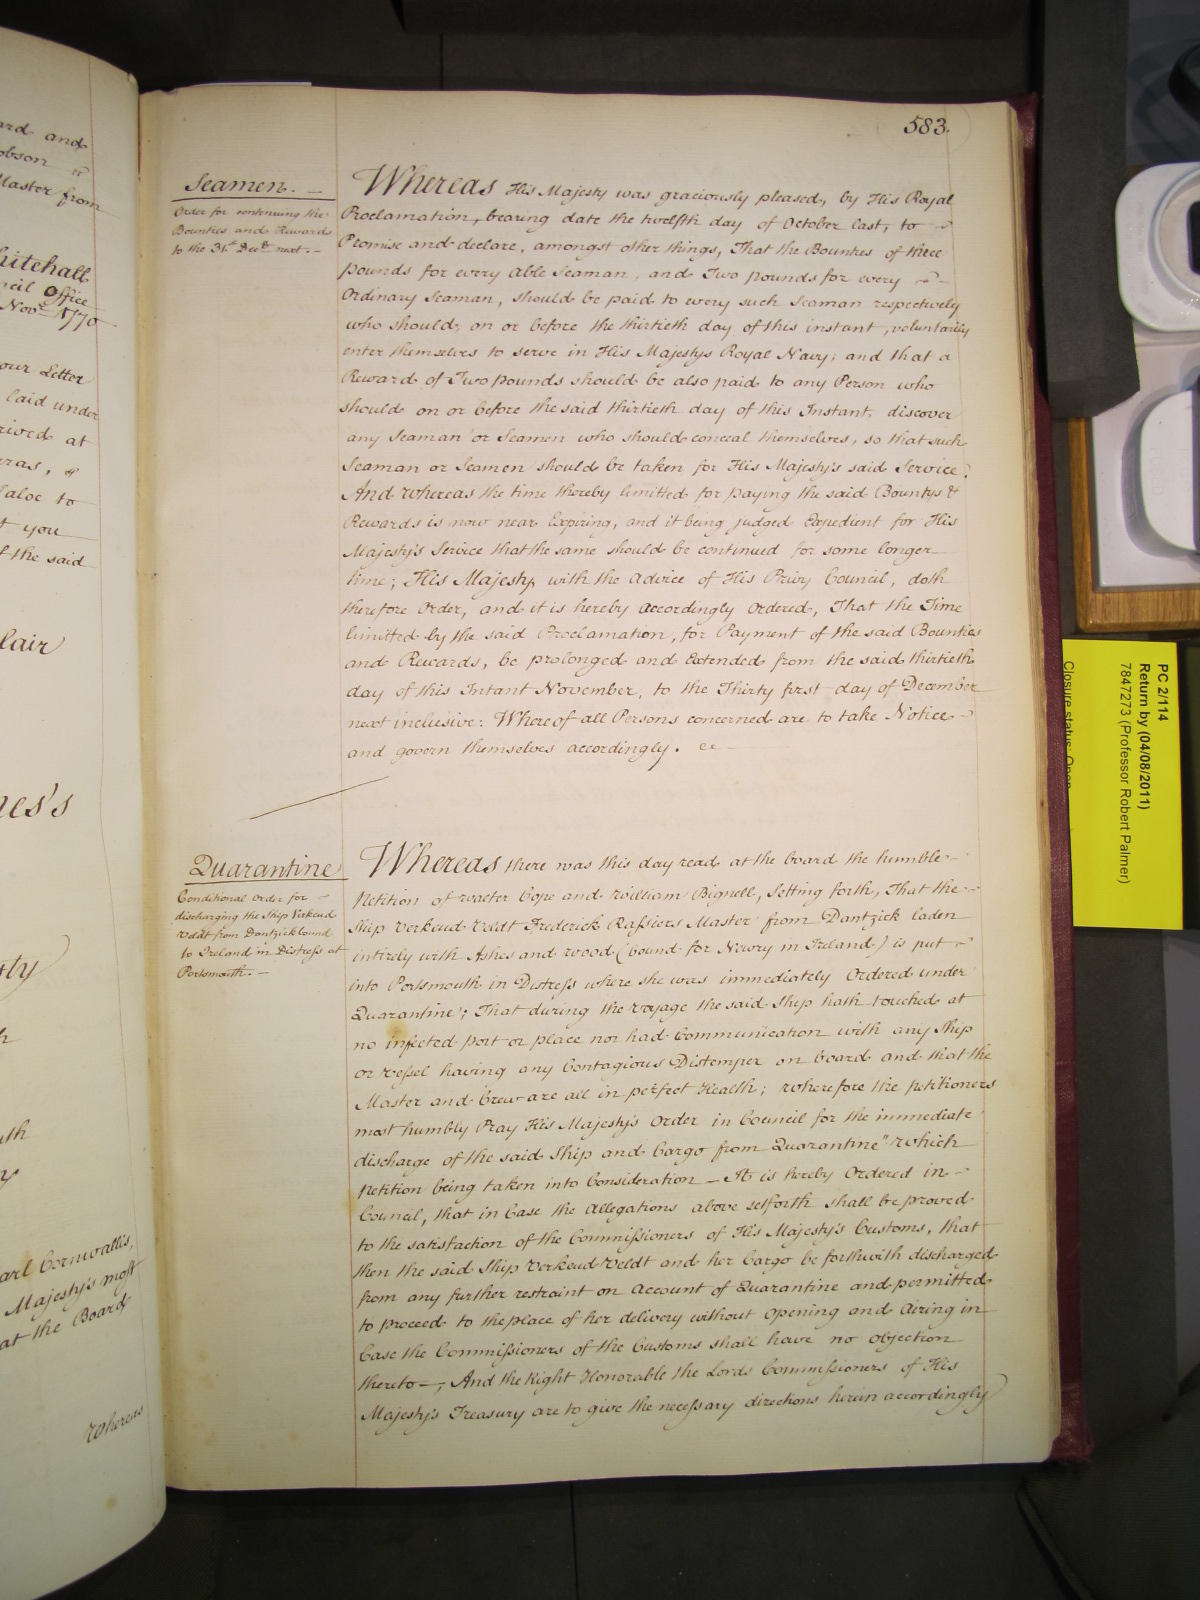 ard and
obson
Master from
hitehall
ncil Office
Novr 1770
our Letter
laid under
rived at
ras, &
aloe to
t you
f the said
lair
nes's
ty
uth
y
arl Cornwallis,
Majesty's most
at the Board
Whereas
583.
Seamen. —
Order for continuing the
Bounties and Rewards
to the 31st. Decr. next. —
Whereas His Majesty was graciously pleased, by His Royal
Proclamation, bearing date the twelfth day of October last, to
Promise and declare, amongst other things, That the Bounties of three
pounds for every able Seaman, and Two pounds for every
Ordinary Seaman, should be paid to every such Seaman respectively
who should, on or before the thirtieth day of this instant, voluntarily
enter themselves to serve in His Majestys Royal Navy; and that a
Reward of Two pounds should be also paid to any Person who
should on or before the said thirtieth day of this Instant, discover
any Seaman or Seamen who should conceal themselves, so that such
Seaman or Seamen should be taken for His Majesty's said Service:
And Whereas the time thereby limitted for paying the said Bountys &
Rewards is now near Expiring, and it being judged Expedient for His
Majesty's Service that the same should be continued for some longer
time; His Majesty with the advice of His Privy Council, doth
therefore Order, and it is hereby accordingly Ordered, That the Time
limitted by the said Proclamation, for Payment of the said Bounties
and Rewards, be prolonged and Extended from the said thirtieth
day of this Intant November, to the Thirty first day of December
next inclusive: Whereof all Persons concerned are to take Notice
and govern themselves accordingly.
Quarantine
Conditional Order for
discharging the Ship Verkeud
Veldt from Dantzick bound
to Ireland in Distress at
Portsmouth. —
Whereas there was this day read at the board the humble
Petition of Walter Cope and William Bignell, Setting forth, That the
Ship Verkeud Veldt Frederick Rassiers Master from Dantzick laden
intirely with Ashes and wood (bound for Newry in Ireland) is put
into Portsmouth in Distress where she was immediately Ordered under
Quarantine; That during the voyage the said Ship hath touched at
no infected port or place nor had Communication with any Ship
or vessel having any Contagious Distemper on board and that the
Master and Crew are all in perfect Health; Wherefore the petitioners
most humbly Pray His Majesty's Order in Council for the immediate
discharge of the said Ship and Cargo from Quarantine" Which
Petition being taken into Consideration — It is hereby Ordered in
Council, that in Case the Allegations above setforth shall be proved
to the satisfaction of the Commissioners of His Majesty's Customs, that
then the said Ship Verkeud Veldt and her Cargo be forthwith discharged
from any further restraint on Account of Quarantine and permitted
to proceed to the place of her delivery without Opening and Airing in
Case the Commissioners of the Customs shall have no objection
thereto —; And the Right Honorable the Lords Commissioners of His
Majesty's Treasury are to give the necessary directions herein accordingly
PC 2/114
Return by (04/08/2011)
7847273 (Professor Robert Palmer)
Closure status: Open